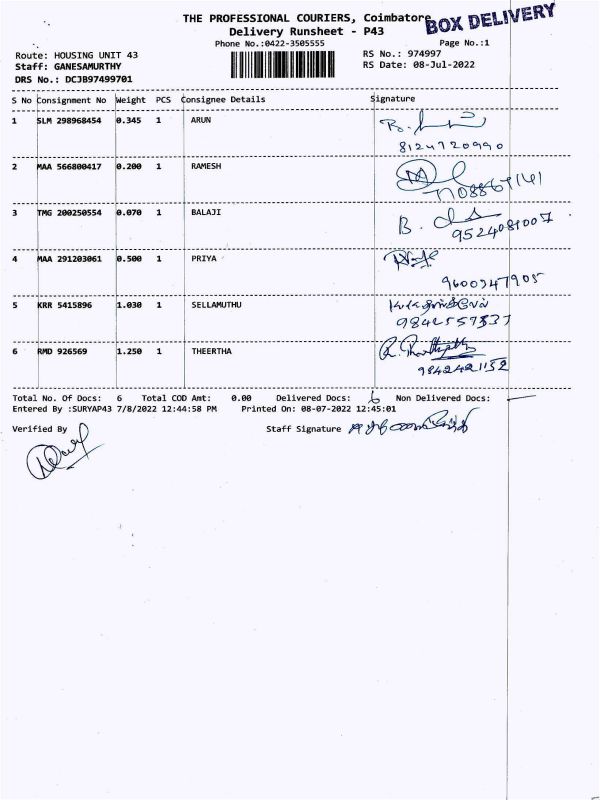 THE PROFESSIONAL COURIERS, Coimbatore
BOX DELIVERY
Delivery Runsheet - P43
Phone No.:0422-3505555
Page No.:1
Route: HOUSING UNIT 43
RS No.: 974997
Staff: GANESAMURTHY
RS Date: 08-Jul-2022
DRS No.: DCJB97499701
S No Consignment No Weight PCS Consignee Details Signature
1 SLM 298968454 0.345 1 ARUN
8124720990
2 MAA 566800417 0.200 1 RAMESH
3 TMG 200250554 0.070 1 BALAJI
9524081007
4 MAA 291203061 0.500 1 PRIYA
9600347905
5 KRR 5415896 1.030 1 SELLAMUTHU
9842557337
6 RMD 926569 1.250 1 THEERTHA
9842421152
Total No. Of Docs: 6 Total COD Amt: 0.00 Delivered Docs: 6 Non Delivered Docs: —
Entered By :SURYAP43 7/8/2022 12:44:58 PM Printed On: 08-07-2022 12:45:01
Verified By Staff Signature